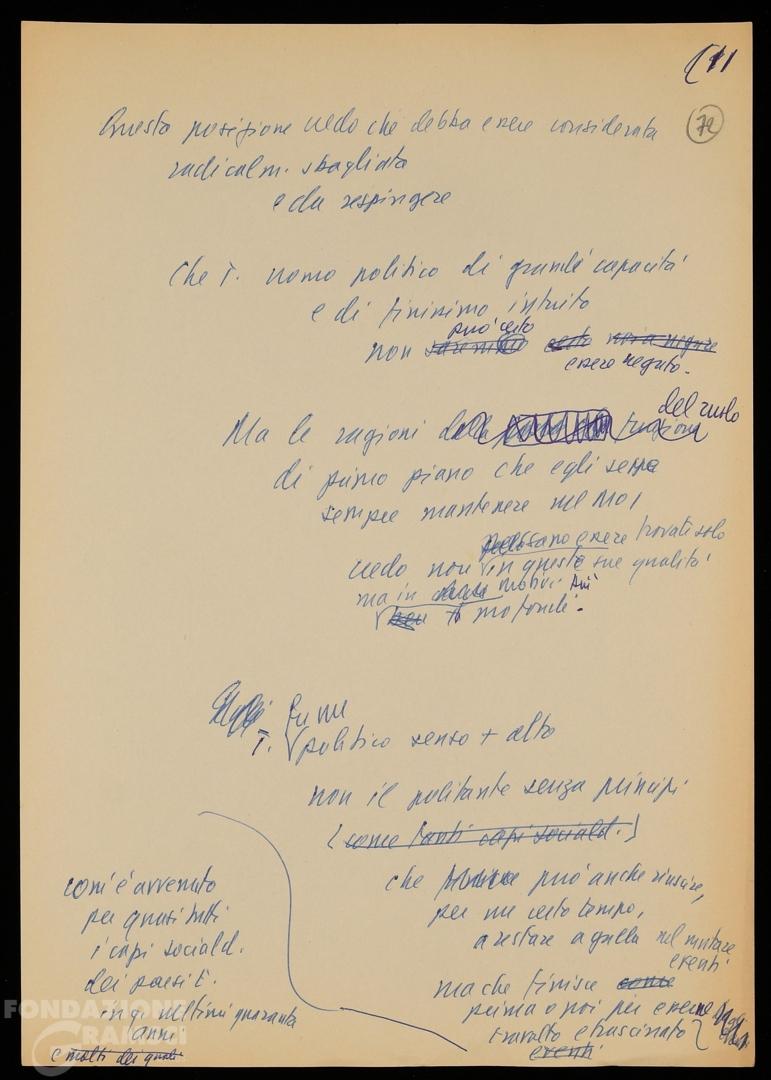 (11
72
Questa posizione credo che debba essere considerata
radicalm. sbagliata
e da respingere
Che T. uomo politico di grande capacità
e di finissimo intuito
può certo
non saremmo certo noi a negare
essere negato.
Ma le ragioni della funzione del ruolo
di primo piano che egli seppe
sempre mantenere nel MOI
possano essere trovati solo
credo non in queste sue qualità
ma in motivi più
ben + profondi.
Egli fu un
T. politico senso + alto
non il politicante senza principi
(come tanti capi sociald.)
che può anche riuscire,
per un certo tempo,
a restare a galla nel mutare
eventi
ma che finisce come
prima o poi per essere
travolto e trascinato
eventi
com'è avvenuto
per quasi tutti
i capi sociald.
dei paesi
in gi ultimi quaranta
anni
e molti dei quali
FONDAZIONE
GRAMSCI